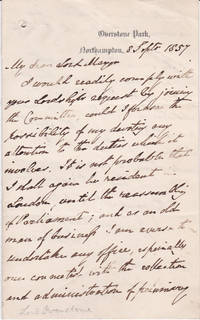 Overstone Park,
Northampton, 8 Septr 1857
My dear Lord Mayor
I would readily comply with
your Lordship's request by joining
the Committee, could I foresee the
possibility of my devoting any
attention to the duties which it
involves. It is not probable that
I shall again be resident in
London, until the reassembling
of Parliament; and as an old
man of business I am averse to
undertake any office, especially
one connected with the collection
and administration of pecuniary
Lord Overstone